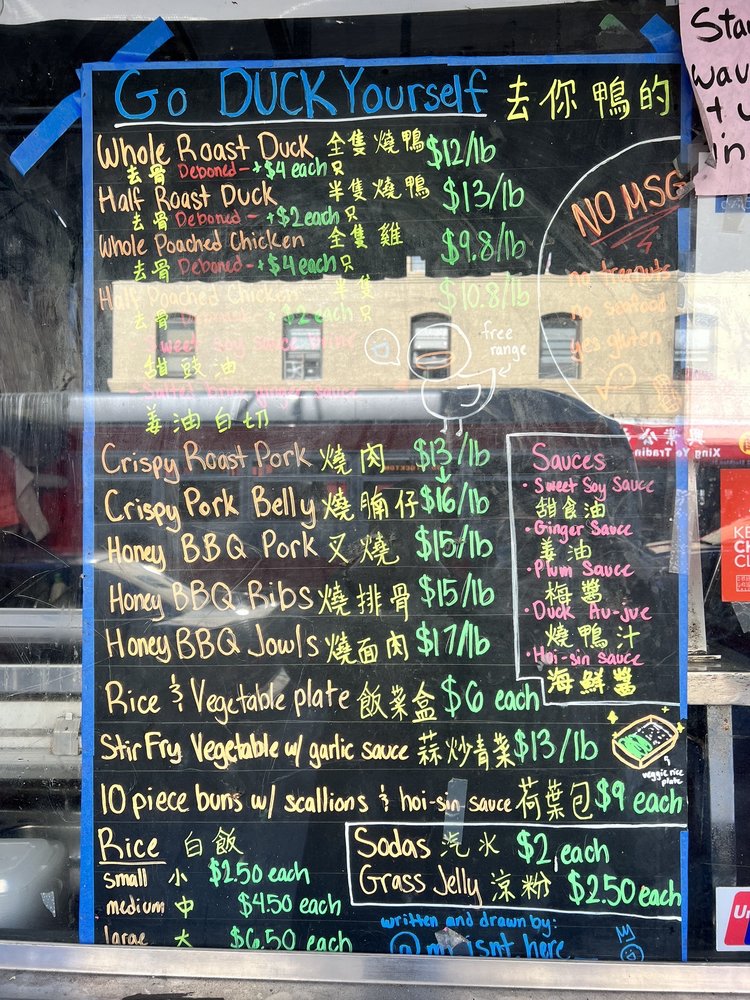 Go DUCK Yourself 去你鴨的
Whole Roast Duck 全隻燒鴨 $12/lb
去骨 Deboned - +$4 each 只
Half Roast Duck 半隻燒鴨 $13/lb
去骨 Deboned - +$2 each 只
Whole Poached Chicken 全隻雞 $9.8/lb
去骨 Deboned - +$4 each 只
Half Poached Chicken 半隻 $10.8/lb
去骨 +$2 each 只
Sweet Soy Sauce
甜豉油
ginger sauce
姜油白切
NO MSG
no seafood
free range
Crispy Roast Pork 燒肉 $13/lb
Crispy Pork Belly 燒腩仔 $16/lb
Honey BBQ Pork 叉燒 $15/lb
Honey BBQ Ribs 燒排骨 $15/lb
Honey BBQ Jowls 燒面肉 $17/lb
Rice & Vegetable plate 飯菜盒 $6 each
Stir Fry Vegetable w/ garlic sauce 蒜炒青菜 $13/lb
10 piece buns w/ scallions & hoi-sin sauce 荷葉包 $9 each
Sauces
· Sweet Soy Sauce
甜食油
· Ginger Sauce
姜油
· Plum Sauce
梅醬
· Duck Au-jue
燒鴨汁
· Hoi-sin sauce
海鮮醬
veggie rice plate
Rice 白飯
small 小 $2.50 each
medium 中 $4.50 each
large 大 $6.50 each
Sodas 汽水 $2 each
Grass Jelly 涼粉 $2.50 each
written and drawn by:
@mr isnt here
Xing Ye Tradin